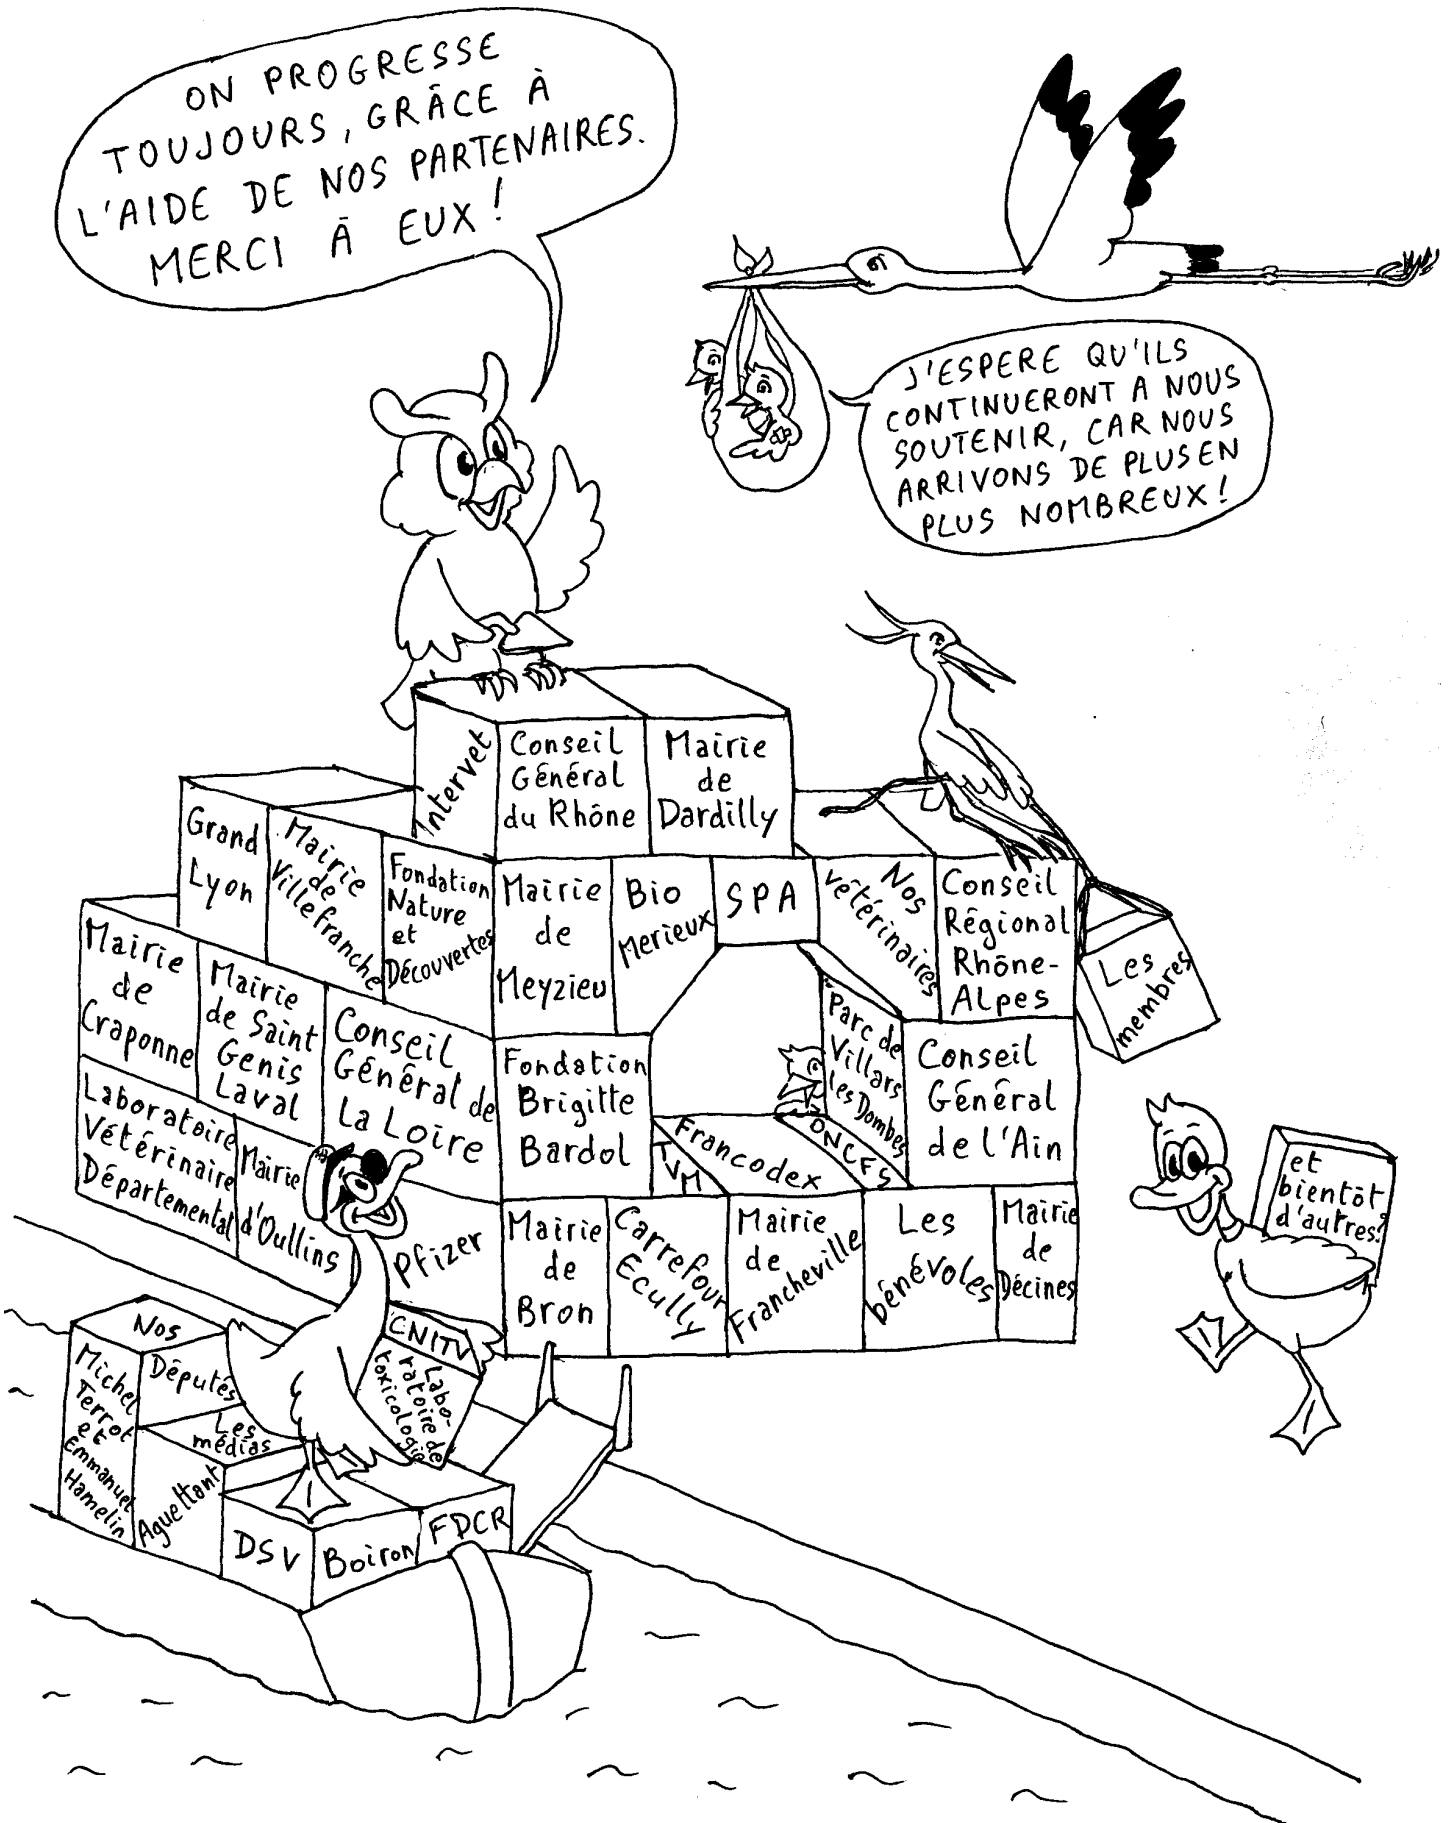 ON PROGRESSE
TOUJOURS, GRÂCE À
L'AIDE DE NOS PARTENAIRES.
MERCI À EUX !
J'ESPERE QU'ILS
CONTINUERONT A NOUS
SOUTENIR, CAR NOUS
ARRIVONS DE PLUS EN
PLUS NOMBREUX !
Intervet
Conseil
Général
du Rhône
Mairie
de
Dardilly
Grand
Lyon
Mairie
de
Villefranche
Fondation
Nature
et
Découvertes
Mairie
de
Meyzieu
Bio
Merieux
SPA
Nos
vétérinaires
Conseil
Régional
Rhône-
Alpes
Les
membres
Mairie
de
Craponne
Mairie
de Saint
Genis
Laval
Conseil
Général de
La Loire
Fondation
Brigitte
Bardol
Parc de
Villars
les Dombes
Conseil
Général
de l'Ain
Laboratoire
Vétérinaire
Départemental
Mairie
d'Oullins
Pfizer
TVM
Francodex
ONCFS
Mairie
de
Bron
Carrefour
Ecully
Mairie
de
Francheville
Les
bénévoles
Mairie
de
Décines
et
bientôt
d'autres!
CNITV
Labo-
ratoire de
toxicologie
Nos
Députés
Michel
Terrot
et
Emmanuel
Hamelin
Les
médias
Aguettant
DSV
Boiron
FDCR